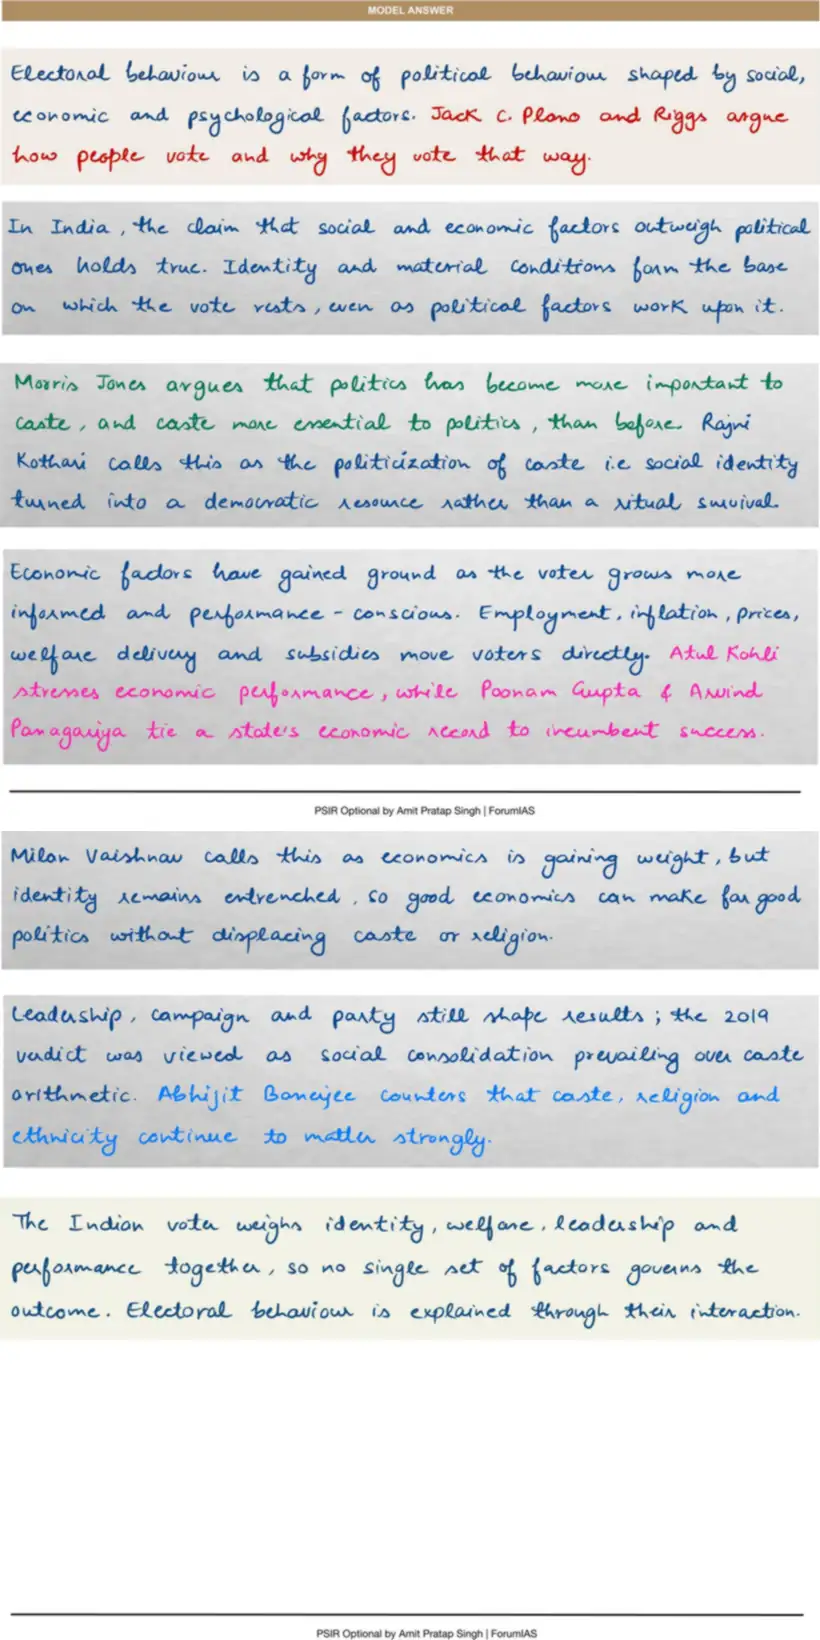 MODEL ANSWER
Electoral behaviour is a form of political behaviour shaped by social,
economic and psychological factors. Jack C. Plano and Riggs argue
how people vote and why they vote that way.
In India, the claim that social and economic factors outweigh political
ones holds true. Identity and material conditions form the base
on which the vote rests, even as political factors work upon it.
Morris Jones argues that politics has become more important to
caste, and caste more essential to politics, than before. Rajni
Kothari calls this as the politicization of caste i.e social identity
turned into a democratic resource rather than a ritual survival.
Economic factors have gained ground as the voter grows more
informed and performance - conscious. Employment, inflation, prices,
welfare delivery and subsidies move voters directly. Atul Kohli
stresses economic performance, while Poonam Gupta & Arvind
Panagariya tie a state's economic record to incumbent success.
PSIR Optional by Amit Pratap Singh | ForumIAS
Milan Vaishnav calls this as economics is gaining weight, but
identity remains entrenched, so good economics can make for good
politics without displacing caste or religion.
Leadership, campaign and party still shape results; the 2019
verdict was viewed as social consolidation prevailing over caste
arithmetic. Abhijit Banerjee counters that caste, religion and
ethnicity continue to matter strongly.
The Indian voter weighs identity, welfare, leadership and
performance together, so no single set of factors governs the
outcome. Electoral behaviour is explained through their interaction.
PSIR Optional by Amit Pratap Singh | ForumIAS